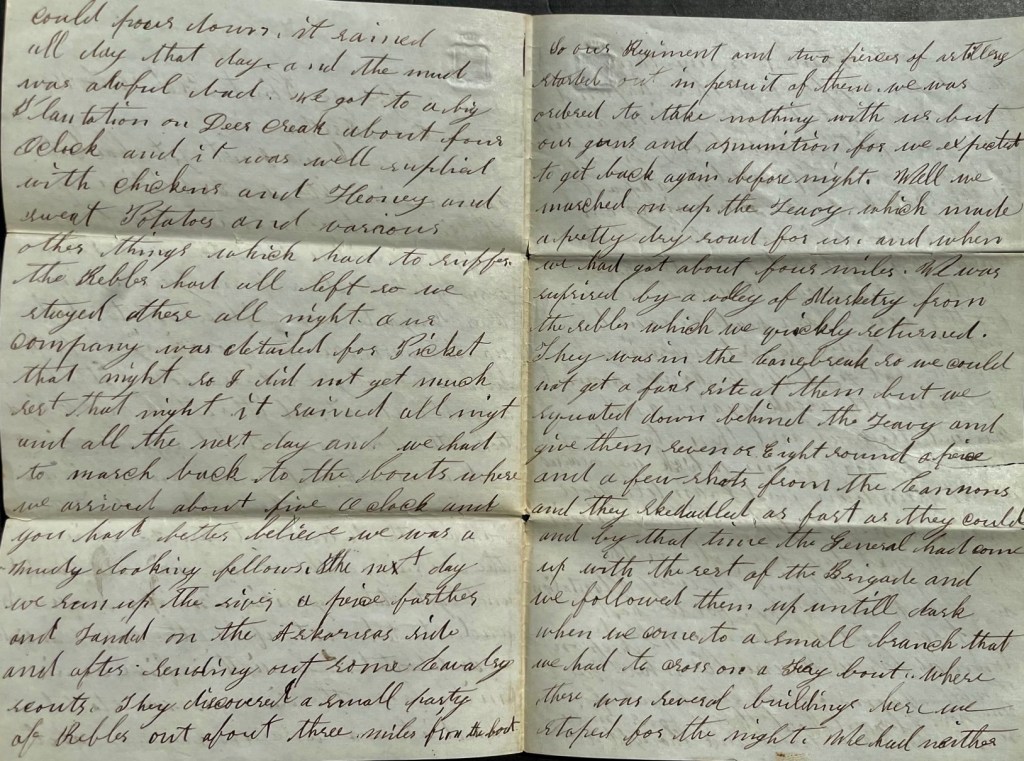 could pour down. it rained
all day that day. and the mud
was awful bad. We got to a big
Plantation on Deer Creak about four
Oclock and it was well suplied
with chickens and Honey and
sweat Potatoes and various
other things which had to suffer.
the Rebbles had all left so we
stayed there all night. our
company was detailed for Picket
that night so I did not get much
rest that night it rained all nigt
and all the next day and we had
to march back to the boats where
we arrived about five Oclock and
you had better believe we was a
mudy looking fellows. the next day
we run up the river a piece farther
and Landed on the Arkansas side
and after sending out some Cavalry
scouts. They discovered a small party
of Rebles out about three miles from the boat
So our Regiment and two pieces of artillery
started out in persuit of them. we was
ordered to take nothing with us but
our guns and amunition for we expected
to get back again before night. Well we
marched on up the Leavy. which made
a pretty dry road for us. and when
we had got about four miles. We was
suprised by a voley of Musketry from
the rebles which we quickly returned.
They was in the Canebreak so we could
not get a fair site at them but we
squated down behind the Leavy and
give them seven or Eight round a piece
and a few shots from the Cannons
and they skedadled as fast as they could
and by that time the General had come
up with the rest of the Brigade and
we followed them up untill dark
when we come to a small branch that
we had to cross on a Fery boat. where
there was several buildings here we
stoped for the night. We had neither